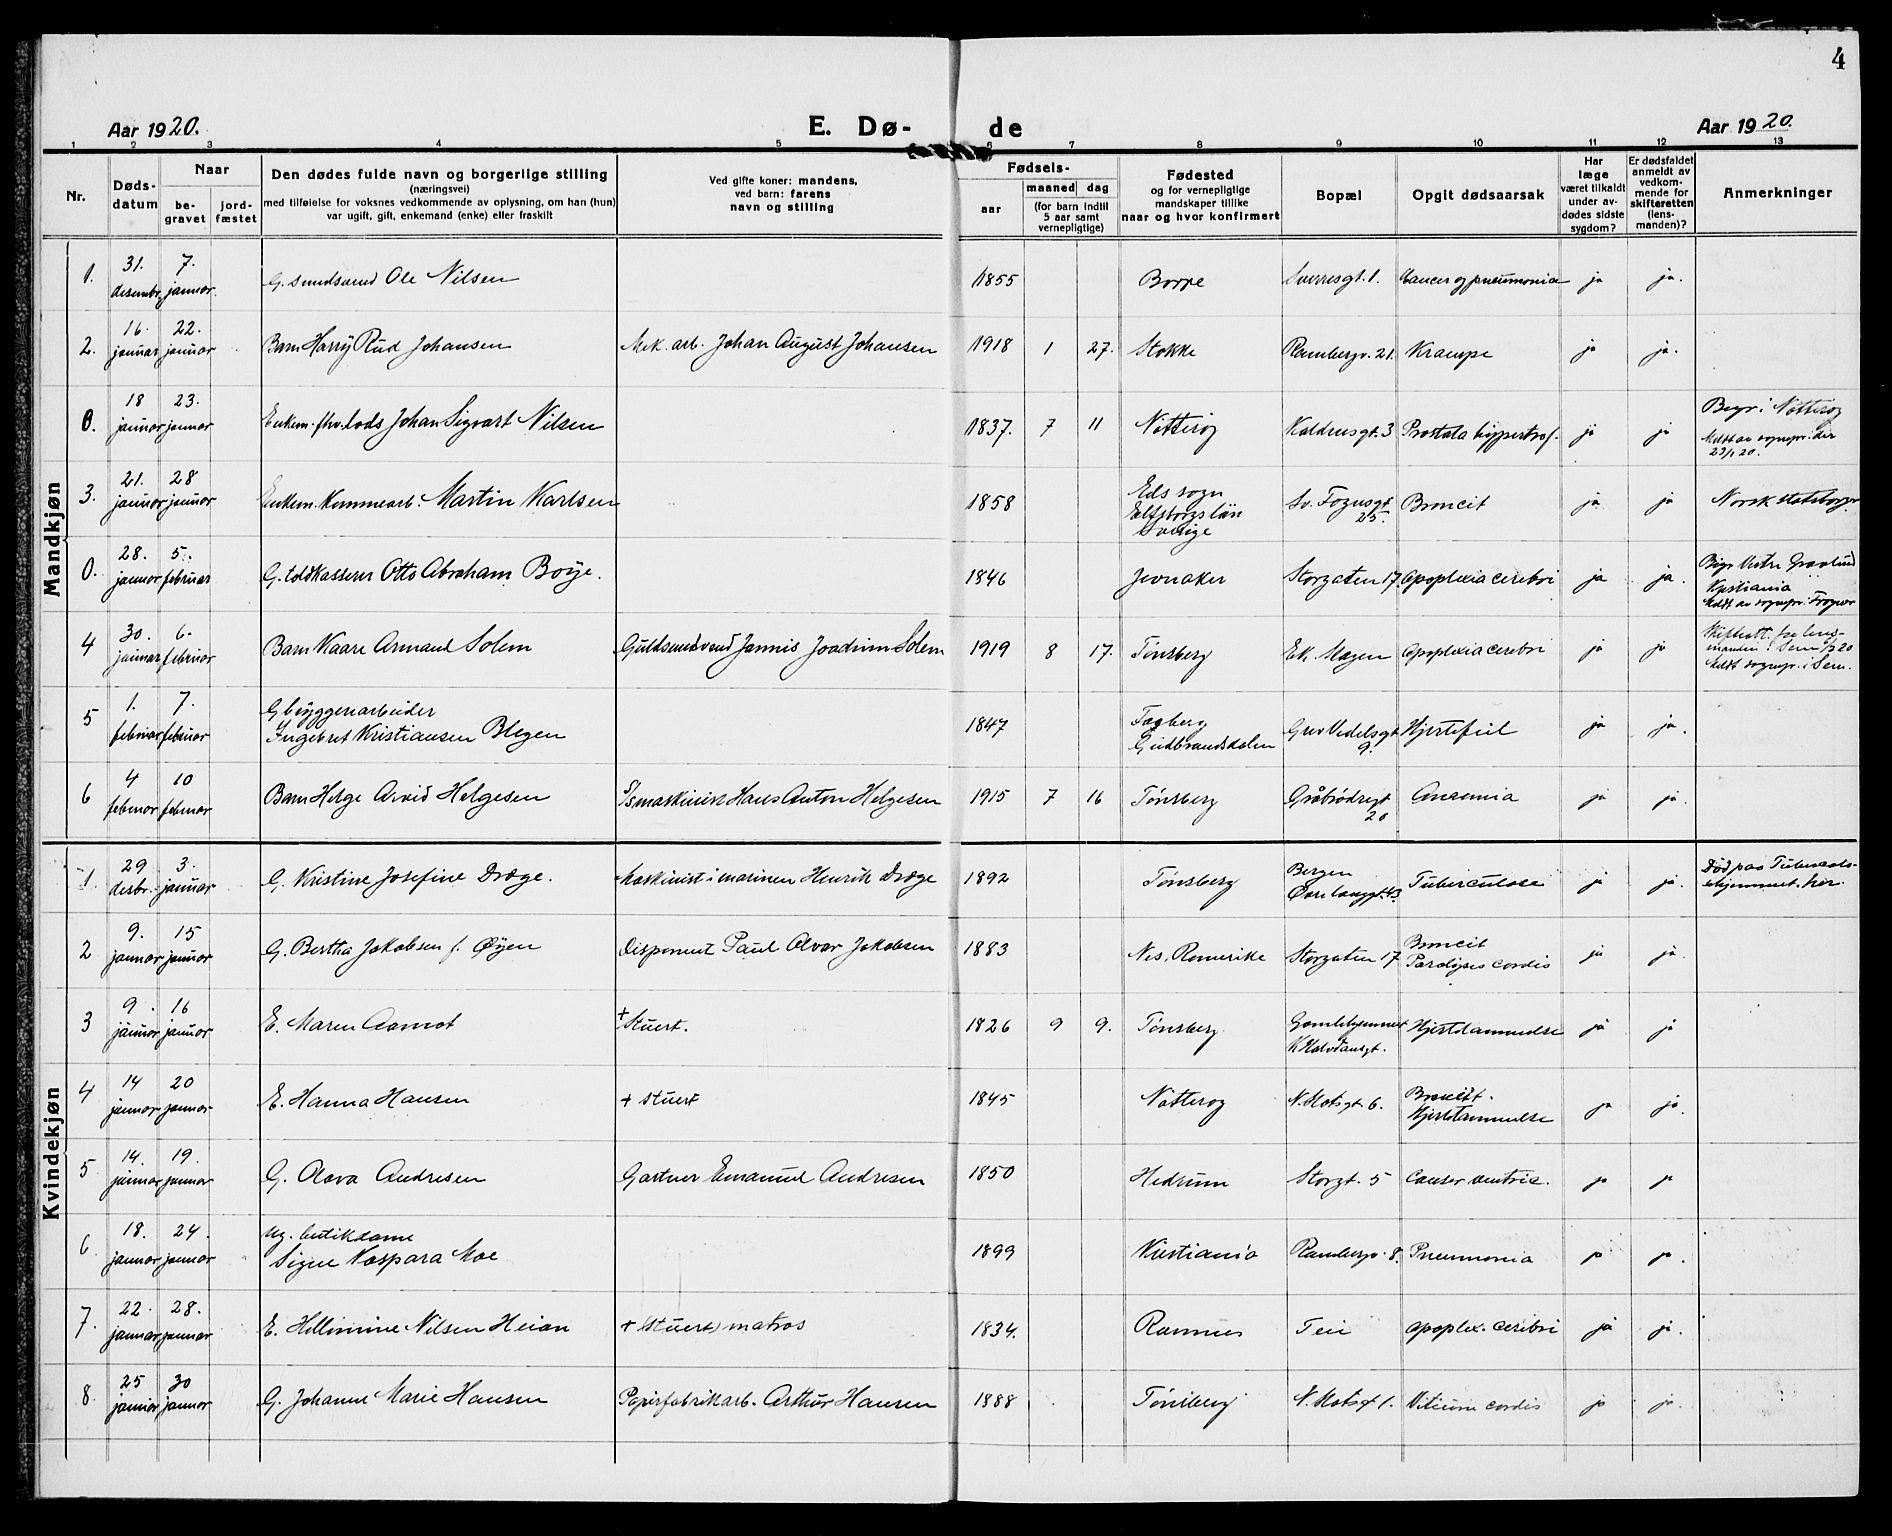 4
Aar 1920.
E. Dø-
de
Aar 1920.
1 2 3 4 5 6 7 8 9 10 11 12 13
Nr.
Døds-
datum
Naar
be-
gravet
jord-
fæstet
Den dødes fulde navn og borgerlige stilling
(næringsvei)
med tilføielse for voksnes vedkommende av oplysning, om han (hun)
var ugift, gift, enkemand (enke) eller fraskilt
Ved gifte koner: mandens,
ved barn: farens
navn og stilling
Fødsels-
aar
maaned dag
(for barn indtil
5 aar samt
vernepligtige)
Fødested
og for vernepligtige
mandskaper tillike
naar og hvor konfirmert
Bopæl
Opgit dødsaarsak
Har
læge
været tilkaldt
under av-
dødes sidste
sygdom?
Er dødsfaldet
anmeldt av
vedkom-
mende for
skifteretten
(lens-
manden)?
Anmerkninger
Mandkjøn
1. 31. desembr. 7. januar. G. smedsvend Ole Nilsen 1855 Borre 1. Cancer og pneumonia ja ja.
2. 16. januar 22. januar Barn Harry Rud Johansen Mek. arb. Johan August Johansen 1918 1 27. Stokke Rambergv. 21. Krampe ja ja.
0. 18 januar 23. januar Enkem. fhv. lods Johan Sigvart Nilsen 1837. 7 11 Nøtterøy Kaldnesgt. 3 Prostata hypertrof. ja ja Begr. i Nøtterøy
Meldt av sognepr. der
23/1 20.
3. 21. januar 28 januar Enkem. Kommunearb. Martin Karlsen 1858 Eds sogn
Elfsborgs län
Sverige Sv. Foynsgt
25. Broncit ja ja Norsk statsborger
0. 28. januar 5. februar G. toldkasserer Otto Abraham Boye. 1846 Jevnaker Storgaten 17. Apoplexia cerebri ja ja. Begr. Vestre Gravlund
Kristiania
Meldt av sognepr. i Frogner
4 30. januar 6. februar Barn Kaare Armand Solem Guldsmedsvend Jannis Joachim Solem 1919 8 17. Tønsberg Ek. Hagen Apoplexia cerebri ja ja Skifteatt. fra lens-
manden i Sem 20
Meldt sognepr. i Sem.
5 1. februar 7. februar G. bryggeriarbeider
Ingebret Kristiansen Blegen 1847 Faaberg
Gudbrandsdalen Grev Wedelsgt
9. Hjertefeil ja ja.
6 4 februar 10 februar Barn Helge Arvid Helgesen Hans Anton Helgesen 1915 7 16 Tønsberg Gråbrødregt
20 Anæmia ja ja.
Kvindekjøn
1. 29 desbr. 3. januar G. Kristine Josefine Dræge. Maskinist i marinen Henrik Dræge 1892 Tønsberg Bergen
Tuberculose ja ja. Død paa Tuberculose-
hjemmet her.
2 9. januar 15 januar G. Bertha Jakobsen f. Øyen Disponent Paul Alvar Jakobsen 1883 Nes, Romerike Storgaten 17 Broncit
Paralysis cordis ja ja.
3 9. januar 16 januar E. Maren Aamot + Stuert. 1826 9 9. Tønsberg Gamlehjemmet
K Halvdansgt. Hjertelammelse ja ja
4 14 januar 20 januar E. Hanna Hansen + stuert 1845 Nøtterøy 6. Broncitt.
Hjertelammelse ja ja.
5. 14. januar 19. januar G. Olava Andresen Gartner Emanuel Andresen 1850 Hedrum Storgt. 5 Canser ventric. ja ja
6 18. januar 24. januar Ug. butikdame
Signe Kaspara Moe 1899 Kristiania Rambergv. 8. Pneumonia ja ja.
7. 22. januar 28. januar E. Hellimine Nilsen Heian + Stuert, matros 1834. Ramnes Teie apoplex. cerebri ja ja.
8. 25 januar 30 januar G. Johanne Marie Hansen Papirfabrikarb. Arthur Hansen 1888 Tønsberg 1. Vitium cordis ja ja.